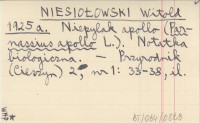 NIESIOŁOWSKI Witold
1925 a. Niepylak apollo (Par-
nassius apollo L.). Notatka
biologiczna. — Przyrodnik
(Cieszyn) 2, nr 1: 33-38, il.